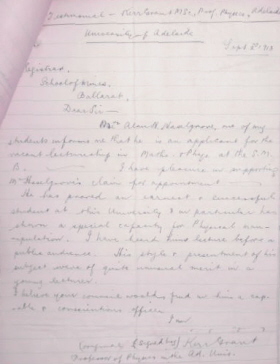 Testimonial - Kerr Grant M.Sc., Prof. Physics, Adelaide
University of Adelaide
Sept
Registrar,
School of Mines,
Ballarat.
Dear Sir -
Mr Alan H. Haselgrove, one of my
students informs me that he is an applicant for the
vacant lectureship in Maths. & Phys. at the S.M.
B. I have pleasure in supporting
Mr Haselgrove's claim for appointment
He has proved an earnest & successful
student at this University & in particular has
shown a special capacity for Physical man-
ipulation. I have heard him lecture before a
public audience. His style & presentment of his
subject were of quite unusual merit in a
young lecturer.
I believe your council would find in him a cap-
able & conscientious officer.
I am
(original) (signed by) Kerr Grant
Professor of Physics in the Ad. Univ.